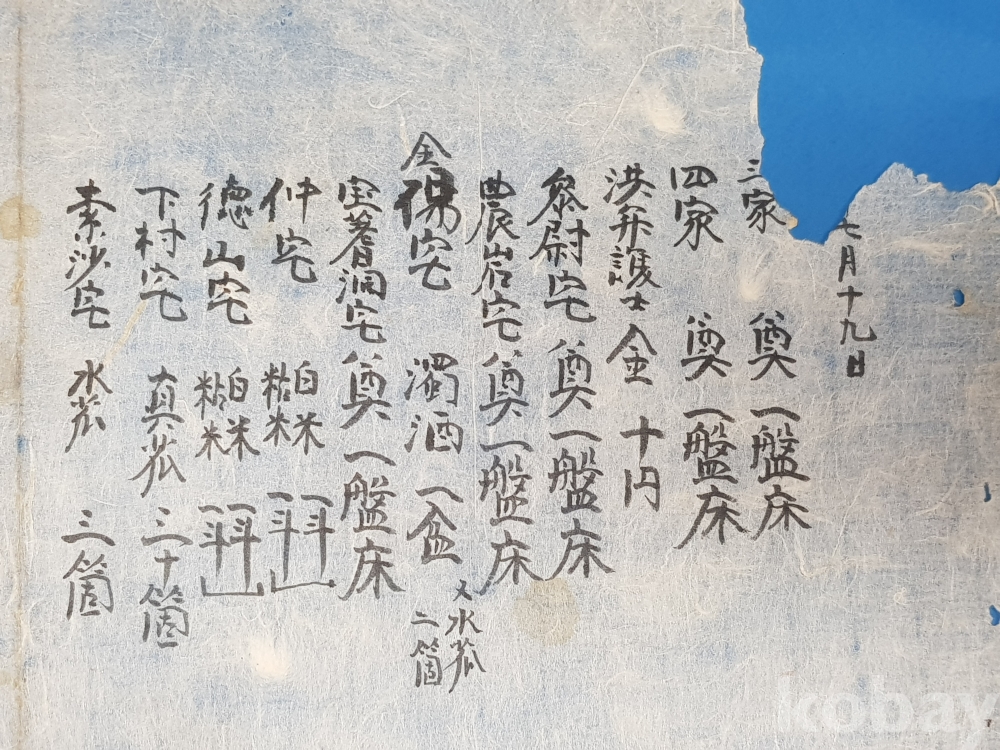 七月十九日
三家 奠 一盤床
四家 奠 一盤床
洪弁護士 金 十円
參尉宅 奠 一盤床
農岩宅 奠 一盤床
全陽宅 濁酒 一盆 又水苽 二箇
宝蓍洞宅 奠 一盤床
仲宅 白米 一斗 粘米 一斗
德山宅 白米 一斗 粘米 一斗
下村宅 真苽 三十箇
素沙宅 水苽 三箇
kobay